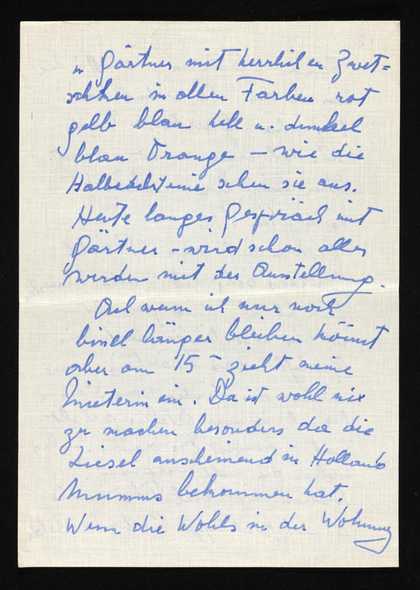 u. Gärtner mit herrlichen Zwet=
schken in allen Farben rot
gelb blau hell u. dunkel
blau Orange – wie die
Halbedelsteine sehen sie aus.
Heute langes Gespräch mit
Gärtner – wird schon alles
werden mit der Ausstellung.
Ach wenn ich nur noch
bissl länger bleiben könnt
aber am 15 – zieht meine
Mieterin ein. Da ist wohl nix
zu machen besonders da die
Liesel anscheinend in Holland
Mumms bekommen hat.
Wenn die Wohls in der Wohnung